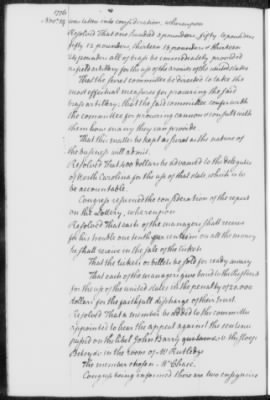 1776
Nov. 19 was taken into consideration, whereupon
Resolved That one hundred 3 pounders, fifty 6 pounders
fifty 12 pounders, thirteen 18 pounders & thirteen
24 pounders all of brass be immediately provided
as field artillery for the use of the armies of the united states
That the secret committee be directed to take the
most effectual measures for procuring the said
brass artillery; that the said committee confer with
the committee for procuring cannon & consult with
them how many they can provide
That this matter be kept as secret as the nature of
the business will admit.
Resolved That 400 dollars be advanced to the delegates
of North Carolina for the use of that state, which is to
be accountable.
Congress resumed the consideration of the report
on the Lottery, whereupon
Resolved That each of the managers shall receive
for his trouble one tenth per centum on all the money
he shall receive in sale of the tickets
That the tickets or billets be sold for ready money
That each of the managers give bond to the
for the use of the united states in the penalty of 20.000
dollars for the faithfull discharge of their trust.
Resolved That a member be added to the committee
appointed to hear the appeal against the sentence
passed on the libel John Barry qui tam &c vs the sloop
Betsey &c in the room of Mr Rutledge
The member chosen Mr Chase.
Congress being informed there are two